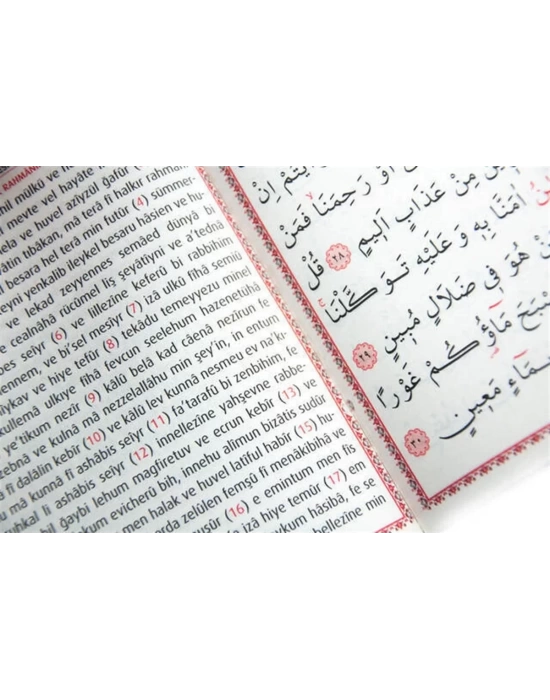 RAHMAN
mil mülkü ve
meyte vel hayâte
ve huvel azîyzül ğafûr
tıbâkan, mâ terâ fî halkır rahman
besara hel terâ min futûr (4) sümmer-
yenkalib ileykel besaru hâsien ve hu-
ve lekad zeyyennes semâed dünyâ bi
cealnâhâ rücûmel liş şeyâtîyni ve a'tednâ
seîyr (6) ve lillezîne keferû bi rabbihim
ennem, ve bi'sel mesîyr (7) izâ ulkû fîhâ semiû
ve hiye tefûr (8) tekâdu temeyyezu minel
kullemâ ulkıye fîhâ fevcun seelehum hazenetühâ
e'tikum nezîr (9) kâlû belâ kad câenâ nezîrun fe
zebnâ ve kulnâ mâ nezzelallâhu min şey'in, in entum
fî dalâlin kebîr (10) ve kâlû lev kunnâ nesmeu ev na'k-
mâ kunnâ fî ashâbis seîyr (11) fa'tarafû bi zenbihim, fe
uhkal li ashâbis seîyr (12) innellezîne yahşevne rabbe-
bil ğaybi lehum mağfiretuv ve ecrun kebîr (13) ve
kum evicherû bih, innehu alîmun bizâtis sudûr
men halak ve huvel latîful habîr (15) hu-
arda zelûlen femşû fî menâkibihâ ve
nuşûr (16) e emintum men fis
izâ hiye temûr (17) em
aykum hâsibâ, fe se
bellezîne min
اِنْ
اَوْ رَحِمَنَا فَمَنْ
مِنْ عَذَابٍ اَلِيمٍ ﴿٢٨﴾ قُلْ
اٰمَنَّا بِهِ وَعَلَيْهِ تَوَكَّلْنَا
هُوَ فِي ضَلَالٍ مُبِينٍ ﴿٢٩﴾
مَاؤُكُمْ غَوْرًا
مَعِينٍ ﴿٣٠﴾